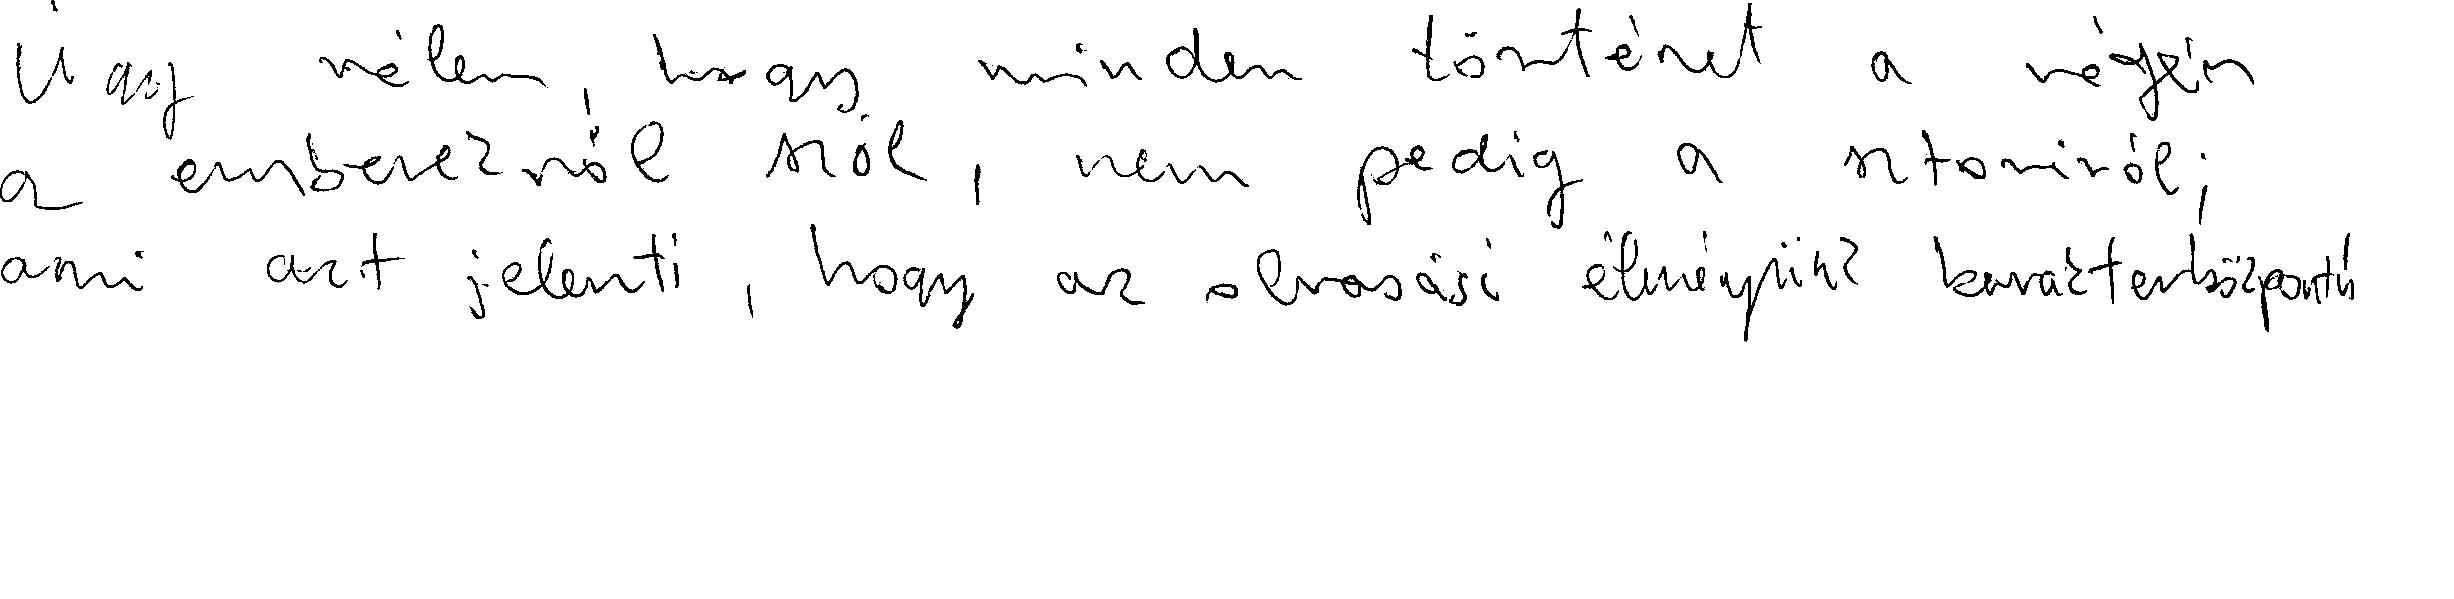 Úgy vélem, hogy minden történet a végén
az emberekről szól, nem pedig a sztoriról;
ami azt jelenti, hogy az olvasási élményünk karakterközpontú